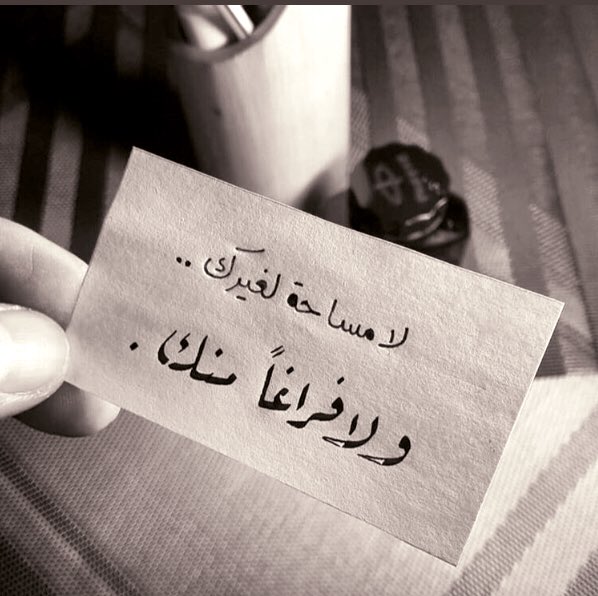 لا مساحة لغيرك ..
ولا فراغاً منك .